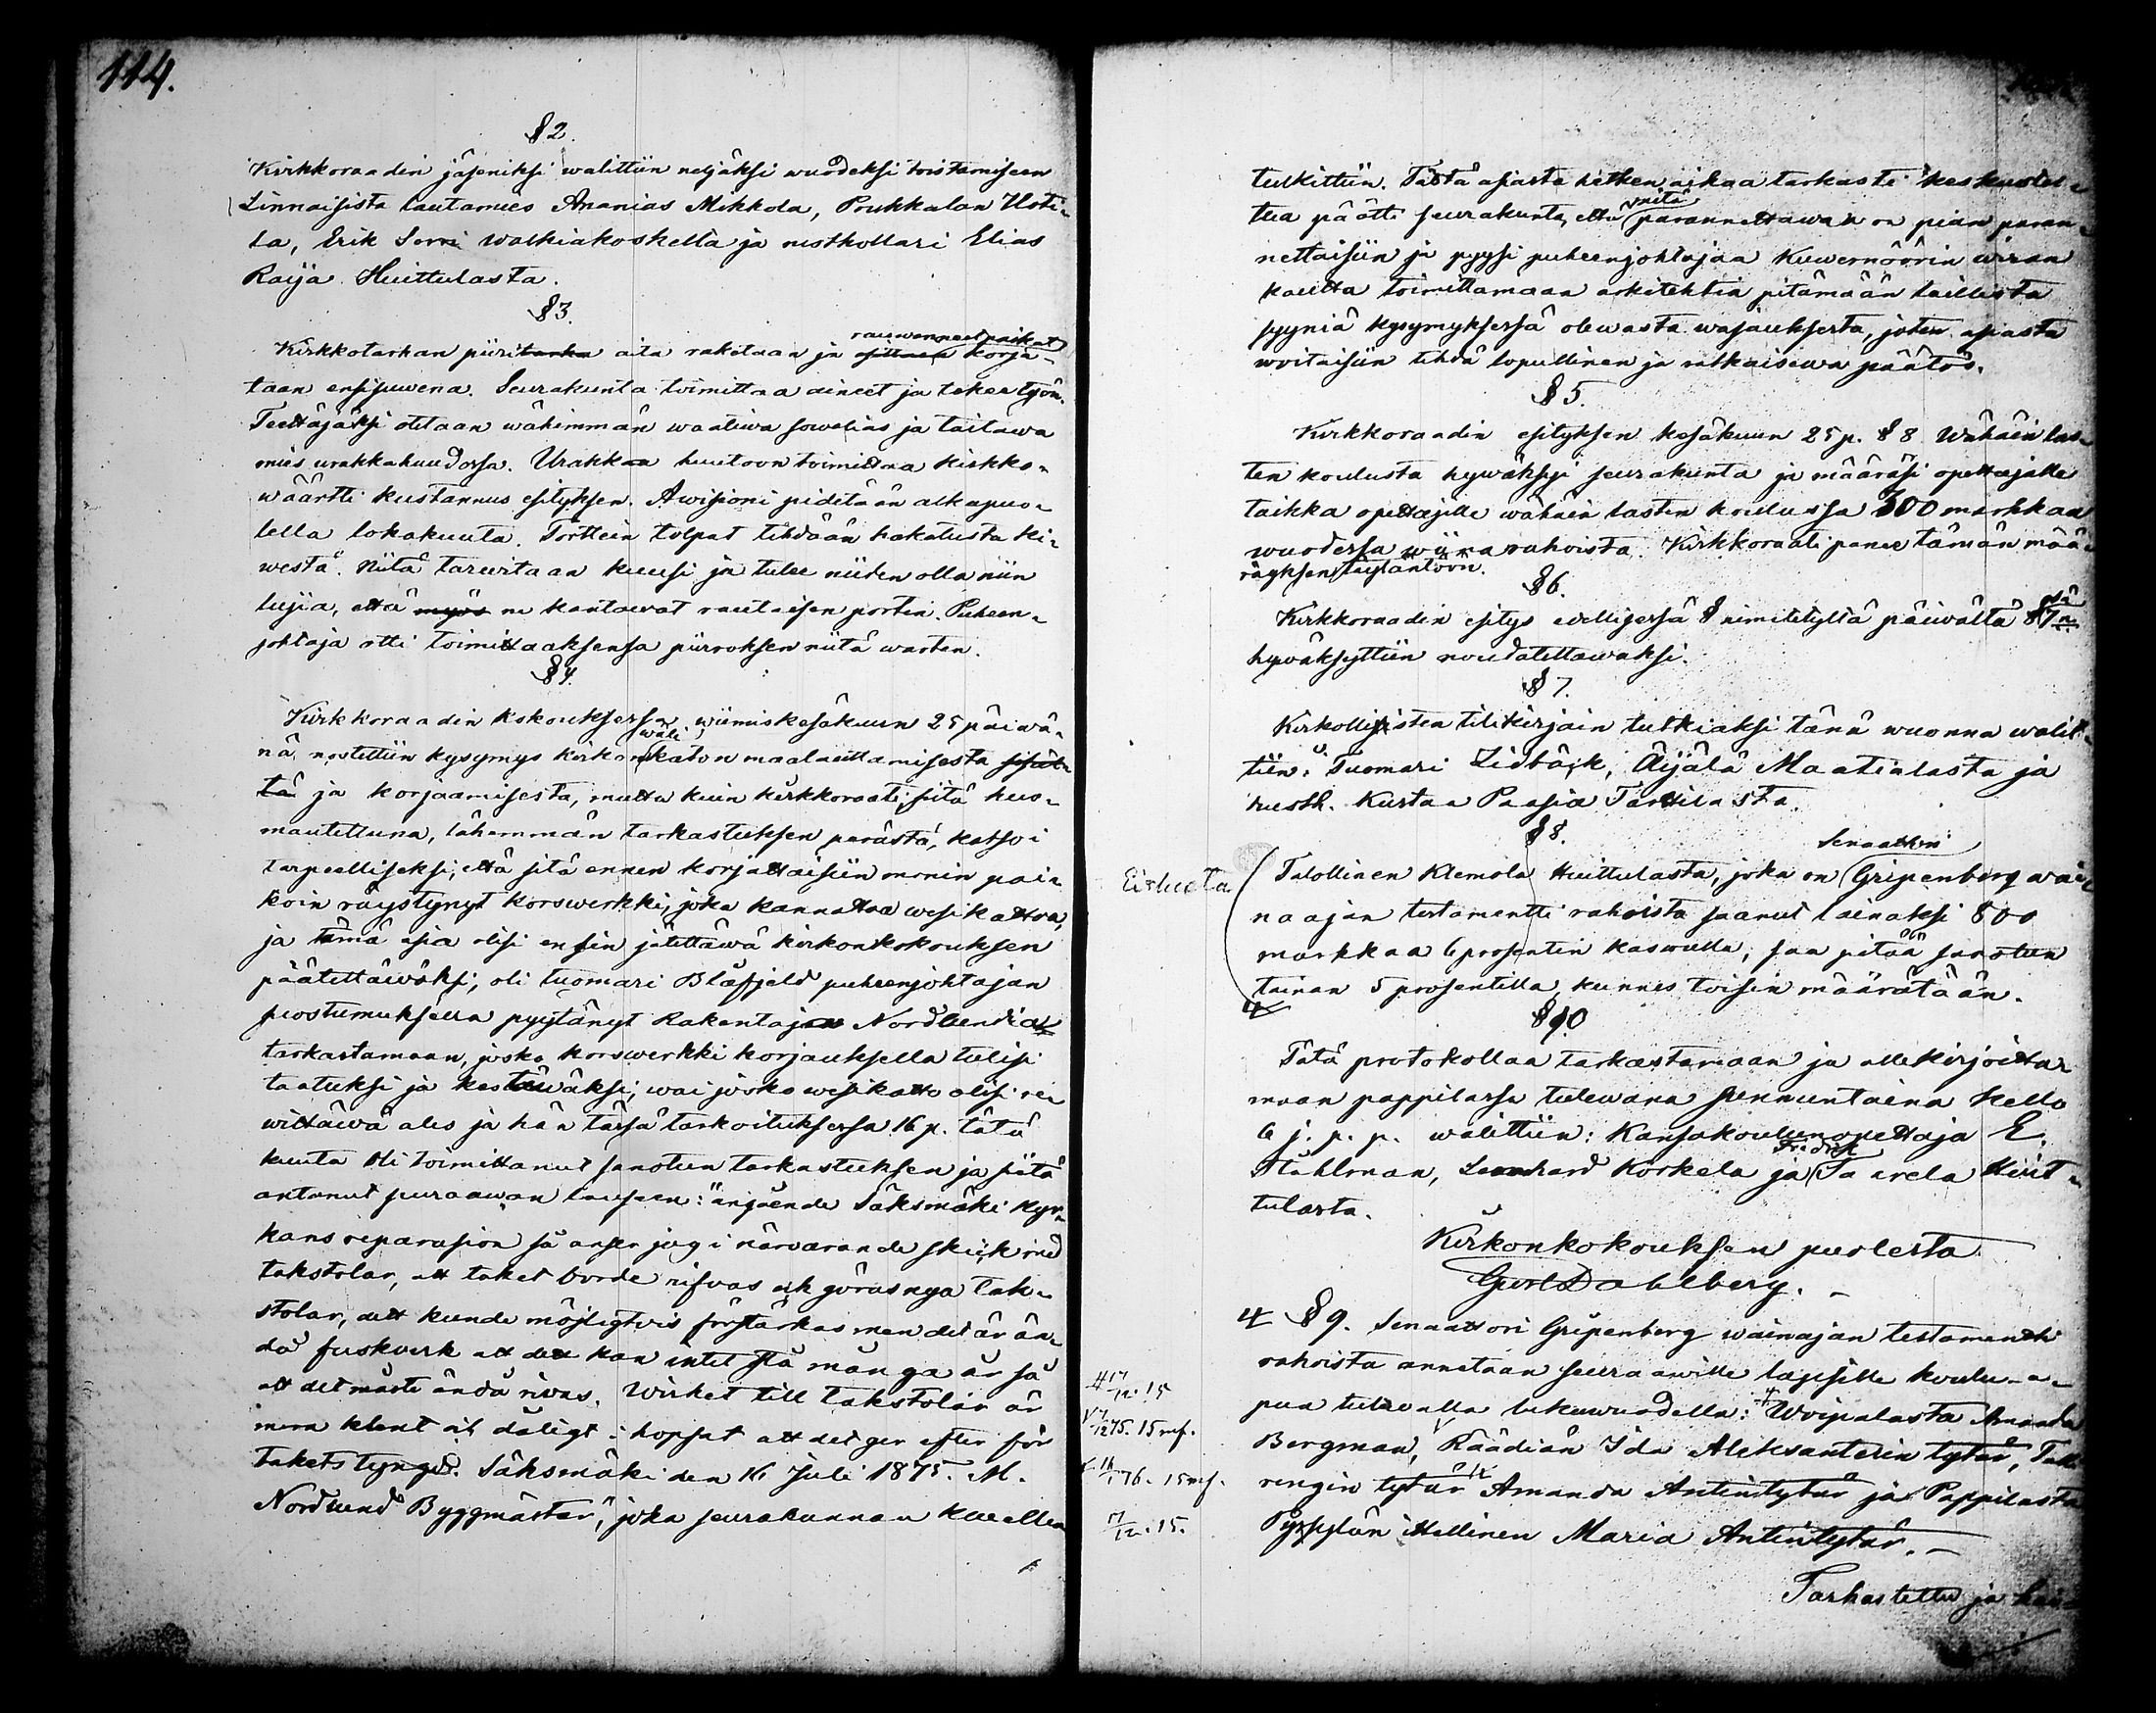 114.
§ 2.
Kirkkoraadin jäseniksi walittiin neljäksi wuodeksi toistamiseen
Linnaisista lautamies Ananias Mikkola, Prukkalan Uoti-
la, Erik Sorri Walkiakoskelta ja rusthollari Elias
Raija Huittulasta.
§ 3.
rauwenneet paikat
Kirkkotarhan piiritarha aita raketaan ja osittain korja-
taan ensisuwena. Seurakunta toimittaa aineet ja tekee työn.
Teettäjäksi otetaan wähimmän waatiwa sowelias ja taitawa
mies urakkahuudossa. Urakkaa huutoon toimittaa kirkko-
wäärtti kustannus esityksen. Awisioni pidetään alkupuo-
lella lokakuuta. Porttein tolpat tehdään hakatusta ki-
westä. Niitä tarwitaan kuusi ja tulee niiden olla niin
lujia, että myös ne kantawat rautaisen portin. Puheen-
johtaja otti toimittaaksensa piirroksen niitä warten.
§ 4.
Kirkkoraadin kokouksessa wiimis kesäkuun 25 päiwä-
wäli
nä nostettiin kysymys kirkon katon maalauttamisesta sisäl-
tä ja korjaamisesta, mutta kuin kirkkoraati, siitä huo-
mautettuna, lähemmän tarkastuksen perästä, katsoi
tarpeelliseksi, että sitä ennen korjattaisiin monin pai-
koin räystynyt korswerkki, joka kannattaa wesikattoa,
ja tämä asia olisi ensin jätettäwä kirkonkokouksen
päätettäwäksi, oli tuomari Blåfjeld puheenjohtajan
suostumuksella pyytänyt Rakentajan Nordlundia
tarkastamaan, josko korswerkki korjauksella tulisi
taatuksi ja kestäwäksi, wai josko wesikatto olisi re-
wittäwä alas ja hän tässä tarkoituksessa 16 p. tätä
kuuta oli toimittanut sanotun tarkastuksen ja siitä
antanut seuraawan lauseen: "angående Säksmäki kyr-
kans reparasion så anser jag i närvarande skick med
takstolar, att taket borde rifvas och göras nya tak-
stolar, dett kunde möjligtvis förstärkas men det är än-
då fuskverk att dett kan intet stå många år så
att det måste ändå rivas. Wirket till takstolar är
mera klent och dåligt i hopsat att det ger efter för
takets tyngd. Säksmäki den 16 Juli 1875. M.
Nordlund Byggmästar", joka seurakunnan kuullen
tutkittiin. Tästä asiasta hetken aikaa tarkasti keskustel-
niitä
tua päätti seurakunta, että parannettawan on pian paran-
nettaisiin ja pyysi puheenjohtajaa Kuwernöörin wiran
kautta toimittamaan arkitehtia pitämään laillista
syyniä kysymyksessä olewasta wajauksesta, joten asiasta
woitaisiin tehdä lopullinen ja ratkaisewa päätös.
§ 5.
Kirkkoraadin esityksen kesäkuun 25 p. § 8 Wähäin las-
ten koulusta hywäksyi seurakunta ja määräsi opettajalle
taikka opettajille wähäin lasten koulussa 300 markkaa
wuodessa wiinarahoista. Kirkkoraati panee tämän mää-
räyksen täytäntöön.
§ 6.
Kirkkoraadin esitys edellisessä § nimitetyltä päiwältä § 7:nä
hywäksyttiin noudatettawaksi.
§ 7.
Kirkollisten tilikirjain tutkiaksi tänä wuonna walit-
tiin: Tuomari Lidbäck, Äijälä Maatialasta ja
rusth. Kustaa Paasia Tarttilasta.
§ 8.
Senaattori
Talollinen Klemola Huittulasta, joka on Gripenberg wai-
naajan testamentti rahoista saanut lainaksi 800
markkaa 6 prosentin kaswulla, saa pitää sanotun
lainan 5 prosentilla, kunnes toisin määrätään.
§ 10
Tätä protokollaa tarkastamaan ja allekirjoitta-
maan pappilassa tulewana sunnuntaina kello
6 j. p. p. walittiin: Kansakoulunopettaja E.
Fredrik
Ståhlman, Leonhard Korkela ja Taavela Huit-
tulasta.
Kirkonkokouksen puolesta
Gust Dahlberg.
§ 9. Senaattori Gripenberg wainajan testamentti
rahoista annetaan seuraawille lapsille koulu-a-
pua tulewalla lukuwuodella: Woipalasta Amanda
Bergman, Räädiän Ida Aleksanterin tytär,
rengin tytär Amanda Antintytär ja Pappilasta
ittellinen Maria Antintytär.
17/12. 15
7/12 75. 15 mf.
76. 15 mf.
17/12. 15.
Tarkastettu ja